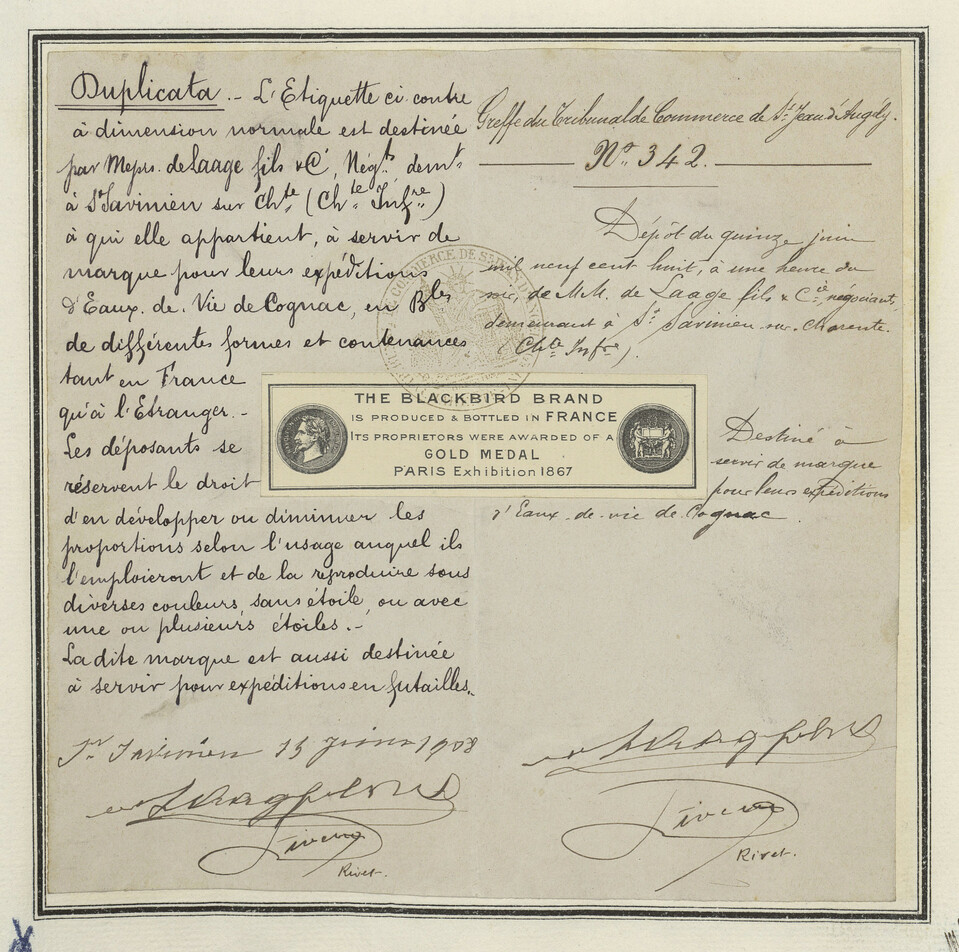 Duplicata.- L'Etiquette ci contre
à dimension normale est destinée
par Messrs. de Laage fils & Cie, Négts, demts
à St Savinien sur Chte (Chte Infre)
à qui elle appartient, à servir de
marque pour leurs expéditions
d'Eaux. de. Vie de Cognac, en Bles
de différentes formes et contenances
tant en France
qu'à l'Etranger.-
Les déposants se
réservent le droit
d'en développer ou diminuer les
proportions selon l'usage auquel ils
l'emploieront et de la reproduire sous
diverses couleurs, sans étoile, ou avec
une ou plusieurs étoiles.-
La dite marque est aussi destinée
à servir pour expéditions en futailles.
St Savinien 15 Juin 1908
Rivet.
Greffe du Tribunal de Commerce de St Jean d'Angély.
No. 342.
Dépôt du quinze juin
mil neuf cent huit, à une heure du
soir, de M.M. de Laage fils & Cie, négociants,
demeurant à St Savinien-sur-Charente.
(Chte Infre).
THE BLACKBIRD BRAND
IS PRODUCED & BOTTLED IN FRANCE
ITS PROPRIETORS WERE AWARDED OF A
GOLD MEDAL
PARIS Exhibition 1867
Destiné à
servir de marque
pour leurs expéditions
d'Eaux-de-vie de Cognac.
Rivet.